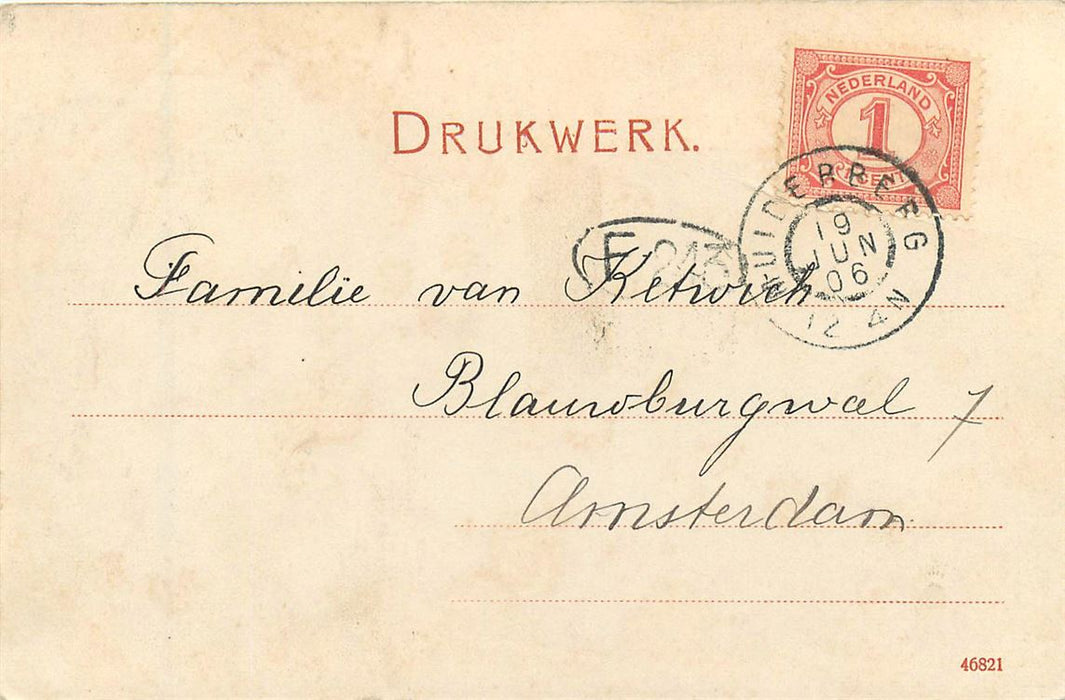 NEDERLAND
1
CENT
DRUKWERK.
MUIDERBERG
19
JUN
06
12-4N
Familie van Ketwich
Blauwburgwal 7
Amsterdam
46821